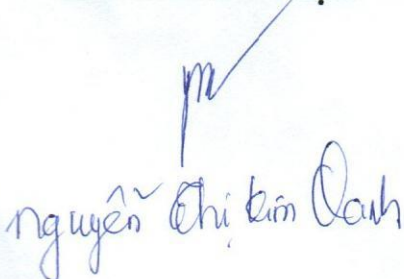 Nguyễn Thị Kim Oanh